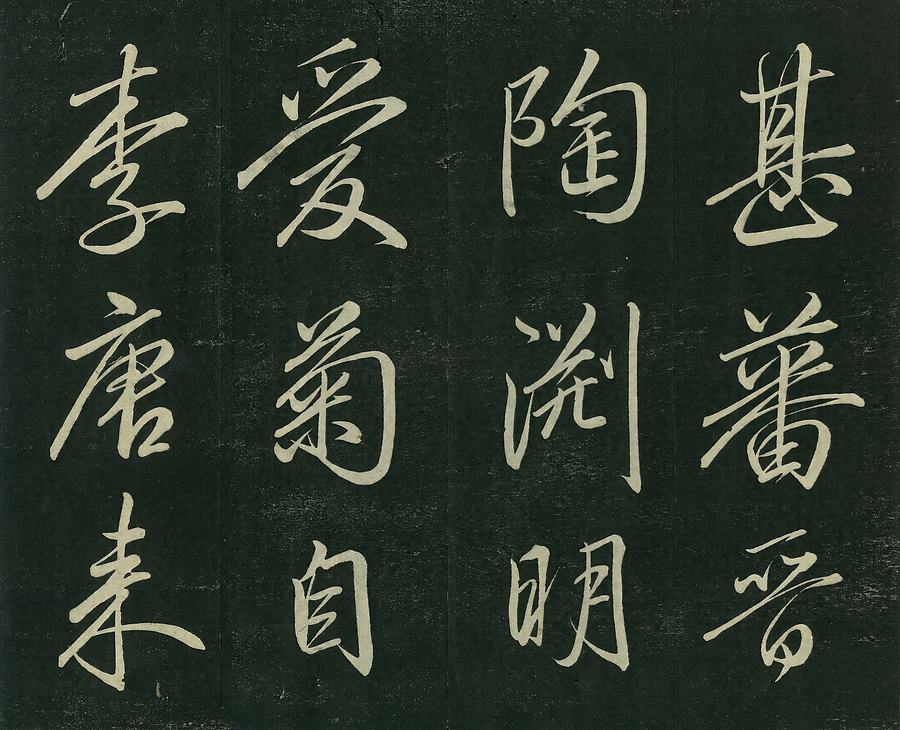 甚蕃晉
陶渊明
爱菊自
李唐来